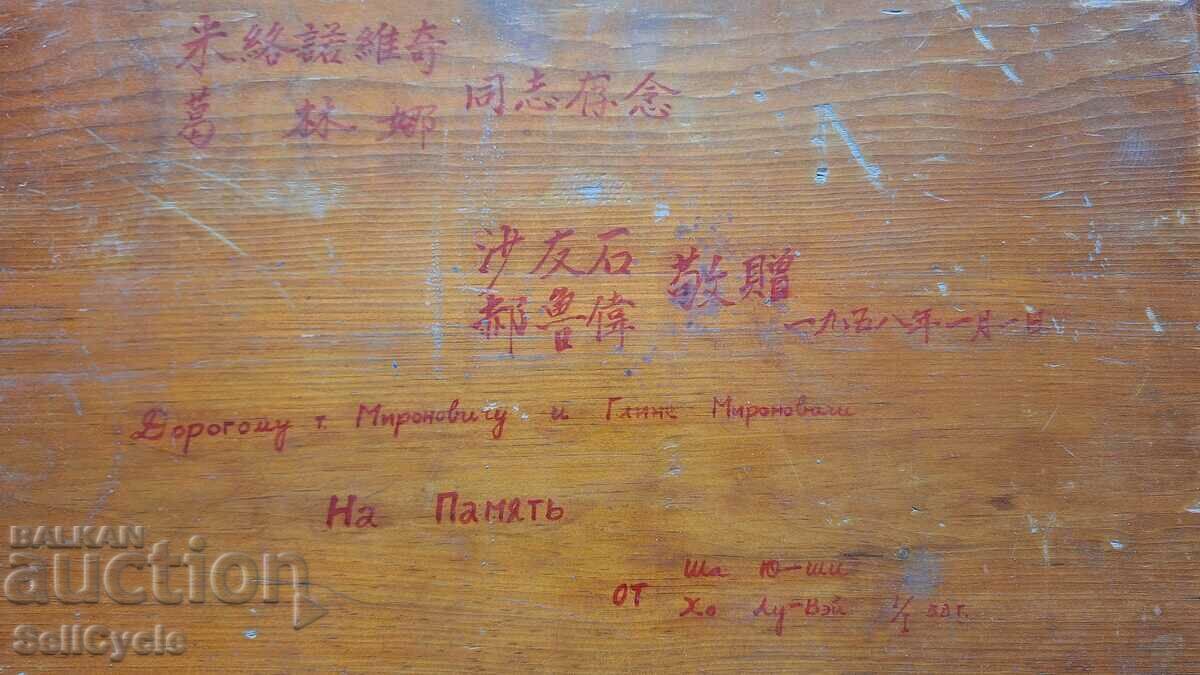 米絡諾維奇
葛 林 娜 同志存念
沙友石
郝魯偉 敬贈
一九五八年一月一日
Дорогому т. Мироновичу и Глине Мироновали
На Память
от Ша Ю-ши
Хо Лу-Вэй 1/I 58 г.
BALKAN
auction
SellCycle